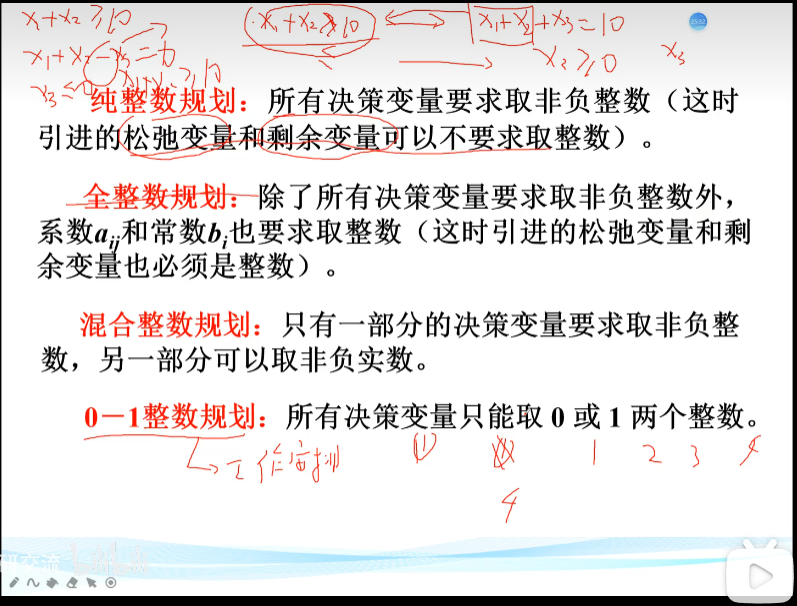 x₁+x₂≥10
x₁+x₂≥10
x₁+x₂+x₃=10
25:32
x₂≥0
x₃
纯整数规划：所有决策变量要求取非负整数（这时
引进的松弛变量和剩余变量可以不要求取整数）。
全整数规划：除了所有决策变量要求取非负整数外，
系数aij和常数bi也要求取整数（这时引进的松弛变量和剩
余变量也必须是整数）。
混合整数规划：只有一部分的决策变量要求取非负整
数，另一部分可以取非负实数。
0－1整数规划：所有决策变量只能取 0 或 1 两个整数。
工作安排
(1)
1 2 3 4
4